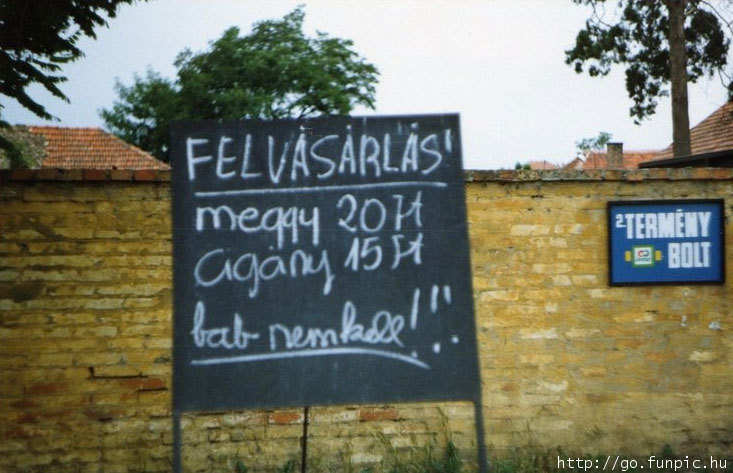 FELVÁSÁRLÁS!
meggy 20 Ft
cigány 15 Ft
bab nem kell!!!
2. TERMÉNY
BOLT
http://go.funpic.hu